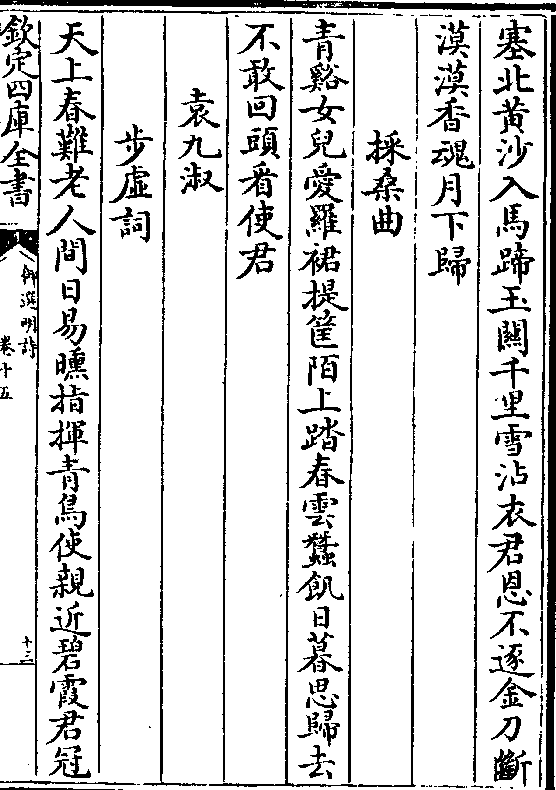 塞北黄沙入馬蹄玉關千里雪沾衣君恩不逐金刀斷
漠漠香魂月下歸
採桑曲
青谿女兒愛羅裙提筐陌上踏春雲蠶飢日暮思歸去
不敢回頭看使君
袁九淑
步虛詞
天上春難老人間日易曛指揮青鳥使親近碧霞君冠
欽定四庫全書
御選明詩
卷十五
十三